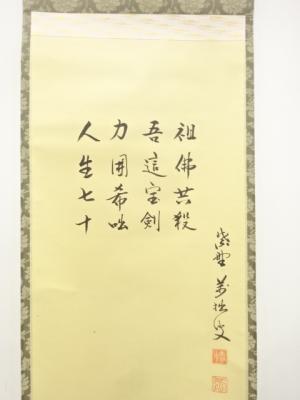 人生七十
力囲希咄
吾這宝剣
祖佛共殺
紫野